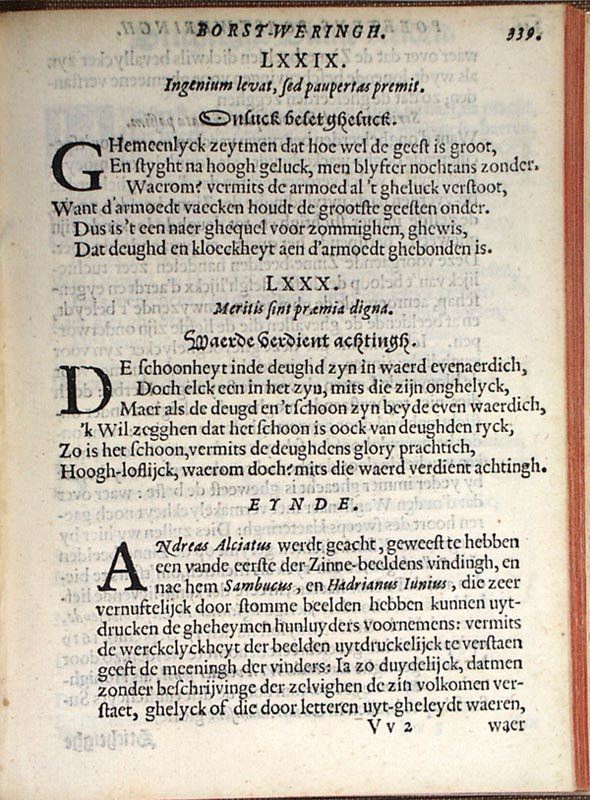 BORST-WERINGH. 339.
LXXIX.
Ingenium levat, sed paupertas premit.
Onluck belet gheluck.
GHemeenlyck zeytmen dat hoe wel de geest is groot,
En styght na hoogh geluck, men blyfter nochtans zonder.
Waerom? vermits de armoed al 't gheluck verstoot,
Want d'armoedt vaecken houdt de grootste geesten onder.
Dus is 't een naer ghequel voor zommighen, ghewis,
Dat deughd en kloeckheyt aen d'armoedt ghebonden is.
LXXX.
Meritis sint præmia digna.
Waerde verdient achtingh.
DE schoonheyt inde deughd zyn in waerd evenaerdich,
Doch elck een in het zyn, mits die zijn onghelyck,
Maer als de deugd en 't schoon zyn beyde even waerdich,
'k Wil zegghen dat het schoon is oock van deughden ryck,
Zo is het schoon, vermits de deughdens glory prachtich,
Hoogh-loflijck, waerom doch? mits die waerd verdient achtingh.
EYNDE.
ANdreas Alciatus werdt geacht, geweest te hebben
een vande eerste der Zinne-beeldens vindingh, en
nae hem Sambucus, en Hadrianus Iunius, die zeer
vernuftelijck door stomme beelden hebben kunnen uyt-
drucken de gheheymen hunluyders voornemens: vermits
de werckelyckheyt der beelden uytdruckelijck te verstaen
geeft de meeningh der vinders: Ia zo duydelijck, datmen
zonder beschrijvinge der zelvighen de zin volkomen ver-
staet, ghelyck of die door letteren uyt-gheleydt waeren,
Vv 2 waer